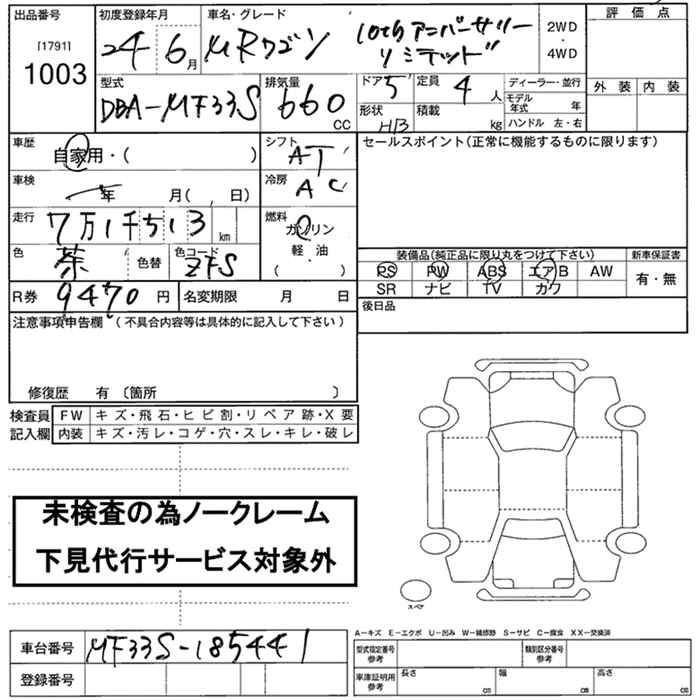 出品番号 初度登録年月 車名・グレード 評価点
[1791] 24 6月 MRワゴン 10thアニバーサリー 2WD
1003 リミテッド ・
4WD
型式 排気量 ドア 5 定員 4人 ディーラー・並行 外装 内装
DBA-MF33S 660 CC 形状 H/B 積載 kg モデル年式 年
ハンドル 左・右
車歴 自家用・( ) シフト AT セールスポイント(正常に機能するものに限ります)
車検 年 月( , 日) 冷房 AC
走行 7万1千513km 燃料 ガソリン
色 茶 色替 色コード ZFS 軽・油
( )
装備品(純正品に限り丸をつけて下さい) 新車保証書
PS PW ABS エアB AW 有・無
SR ナビ TV カワ
R券 9470円 名変期限 月 日 後日品
注意事項申告欄(不具合内容等は具体的に記入して下さい)
修復歴 有 〔箇所 〕
検査員 FW キズ・飛石・ヒビ割・リペア跡・X要
記入欄 内装 キズ・汚レ・コゲ・穴・スレ・キレ・破レ
未検査の為ノークレーム
下見代行サービス対象外
スペア
A-キズ E-エクボ U-凹み W-補修跡 S-サビ C-腐食 XX-交換済
車台番号 MF33S-185441 型式指定番号 参考 類別区分番号 参考
登録番号 車庫証明用 参考 長さ cm 幅 cm 高さ cm